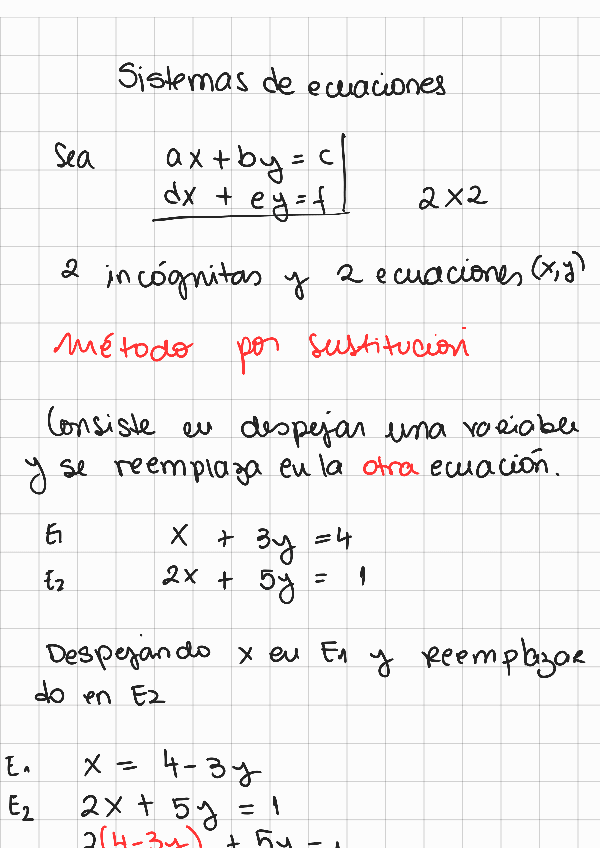 Sistemas de ecuaciones
Sea ax + by = c
dx + ey = f 2x2
2 incógnitas y 2 ecuaciones (x,y)
Método por sustitución
Consiste en despejar una variable
y se reemplaza en la otra ecuación.
E1 x + 3y = 4
E2 2x + 5y = 1
Despejando x en E1 y reemplazan
do en E2
E1 x = 4 - 3y
E2 2x + 5y = 1
2(4-3y) + 5y =